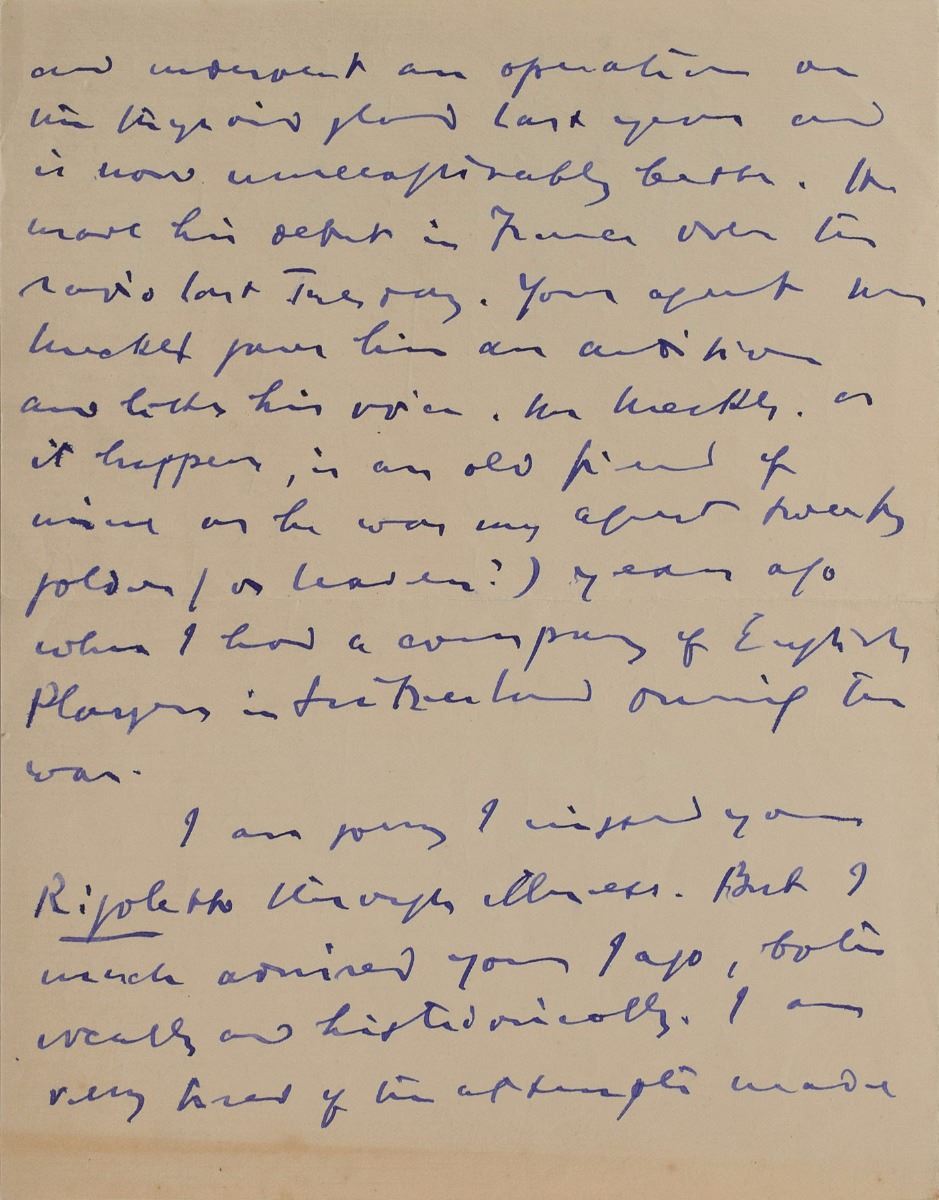 and underwent an operation on
the thyroid gland last year and
is now unrecognisably better. He
made his debut in France over the
radio last Tuesday. Your agent Mr
gave him an audition
and likes his voice. Mr as
it happens, is an old friend of
mine as he was my agent twenty
golden (or leaden?) years ago
when I had a company of English
Players in Switzerland during the
war.
I am sorry I missed your
Rigoletto through illness. But I
much admired your Iago, both
vocally and histrionically. I am
very tired of the attempts made